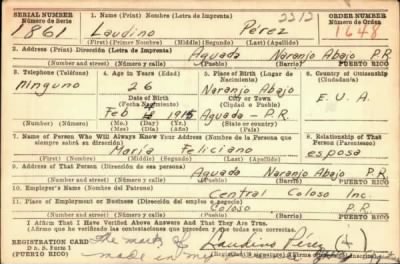 SERIAL NUMBER
Número de Serie
1. Name (Print) Nombre (Letra de Imprenta)
ORDER NUMBER
Número de Orden
1861
Laudino Pérez
1648
(First) (Primer Nombre) (Middle) (Segundo) (Last) (Apellido)
2. Address (Print) Dirección (Letra de Imprenta)
Aguada Naranjo Abajo P.R.
(Number and street) (Número y calle) (Pueblo) (Barrio) (PUERTO RICO)
3. Telephone (Teléfono)
4. Age in Years (Edad)
5. Place of Birth (Lugar de Nacimiento)
6. Country of Citizenship (Ciudadanía)
Ninguno
26
Naranjo Abajo
Date of Birth
(Fecha Nacimiento)
City or Town
(Ciudad o Pueblo)
E.U.A.
Feb 4 1915
Aguada - P.R.
(Number) (Número)
(Mo.) (Day) (Yr.)
(Mes) (Día) (Año)
(State or country)
(País)
7. Name of Person Who Will Always Know Your Address (Nombre de la Persona que siempre sabrá su dirección)
8. Relationship of That Person (Parentesco)
María Feliciano
esposa
(First) (Primero) (Middle) (Segundo) (Last) (Apellido)
9. Address of That Person (Dirección de esa persona)
Aguada Naranjo Abajo P.R.
(Number and street) (Número y calle) (Pueblo) (Barrio) (PUERTO RICO)
10. Employer's Name (Nombre del Patrono)
Central Coloso Inc
11. Place of Employment or Business (Dirección del empleo o negocio)
Coloso P.R.
(Number and street) (Número y calle) (Pueblo) (Barrio) (PUERTO RICO)
I Affirm That I Have Verified Above Answers And That They Are True.
(Afirmo que he verificado las contestaciones que preceden y que todas son ciertas)
REGISTRATION CARD
D. S. S. Form 1
(PUERTO RICO)
The mark of Laudino Pérez (+)
made in my
Registrant's signature